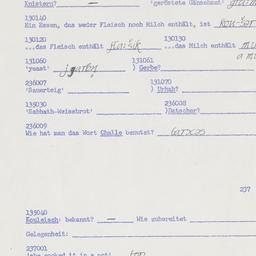 Knistern? — 'geröstete Gänsehaut'
130140
Ein Essen, das weder Fleisch noch Milch enthält, ist
130120 130130
...das Fleisch enthält flaišik ...das Milch enthält
131060 131061
'yeast' ) Gerbe?
236007 131070
'Sauerteig' ) Urhab?
135030 236008
'Sabbath-Weissbrot' )Datscher?
236009
Wie hat man das Wort Challe benutzt?
237
135040
Kouletsch: bekannt? — Wie zubereitet
Gelegenheit:
237001